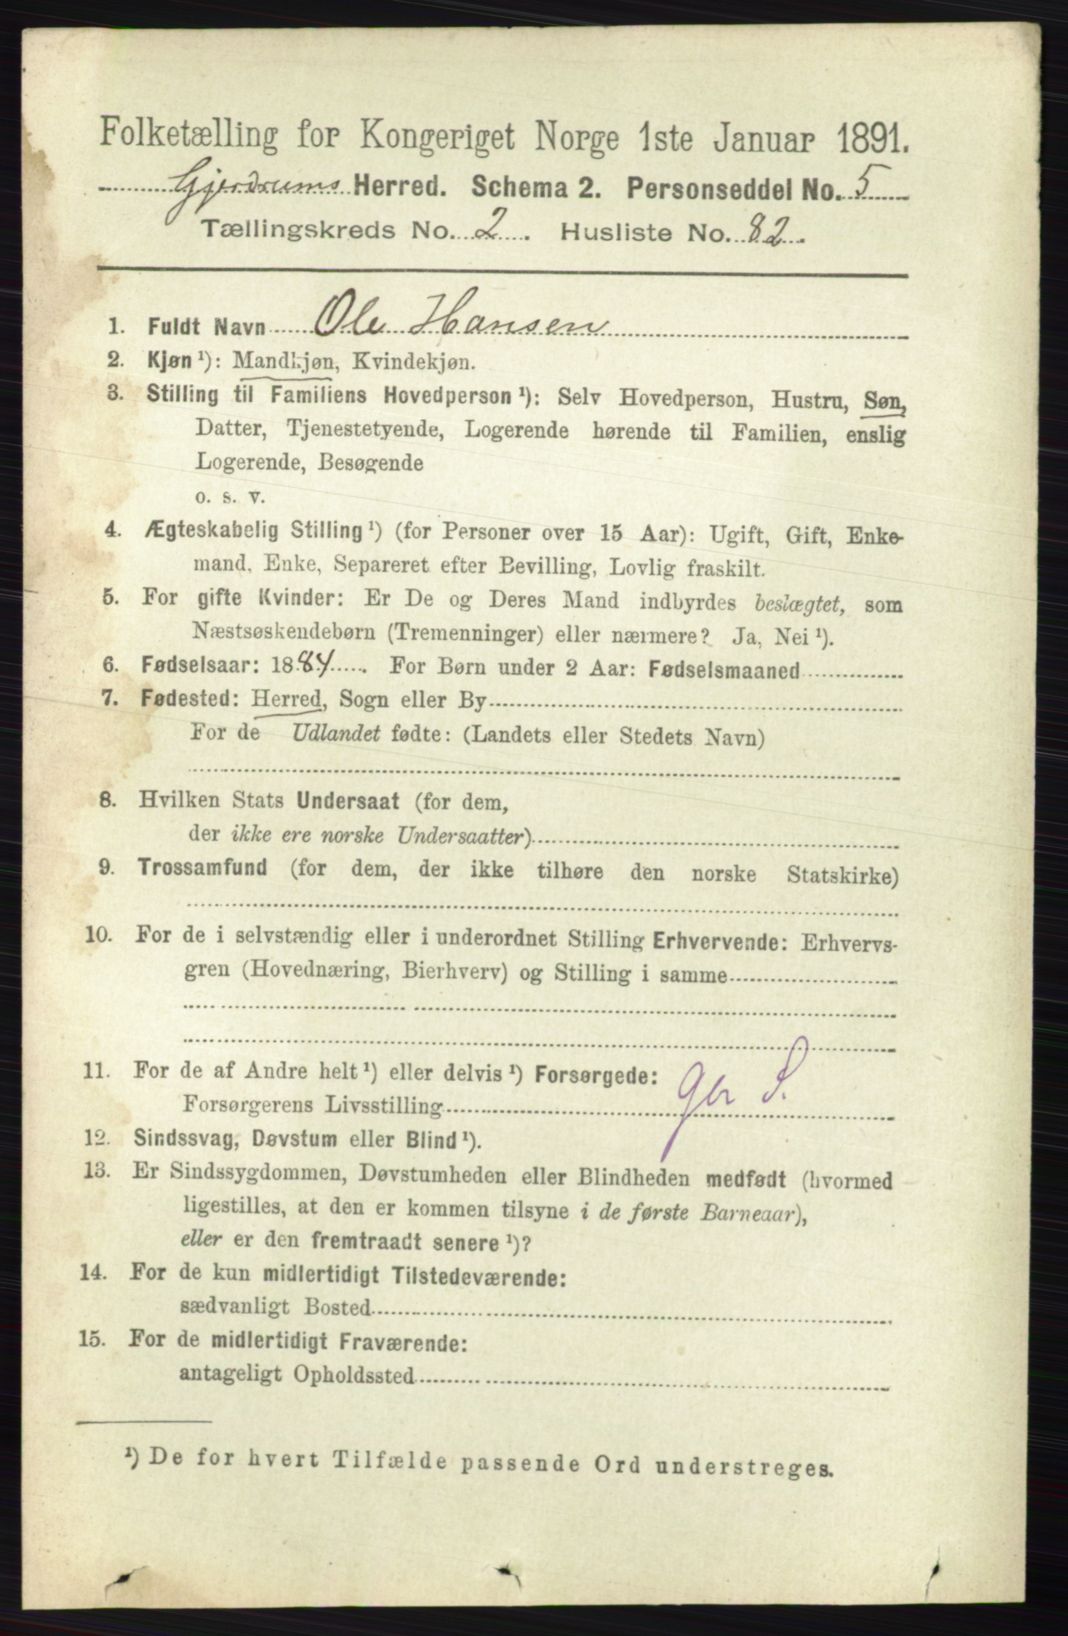 Folketælling for Kongeriget Norge 1ste Januar 1891.
Gjerdrums Herred. Schema 2. Personseddel No. 5
Tællingskreds No. 2. Husliste No. 82.
1. Fuldt Navn Ole Hansen
2. Kjøn ¹): Mandkjøn, Kvindekjøn.
3. Stilling til Familiens Hovedperson ¹): Selv Hovedperson, Hustru, Søn,
Datter, Tjenestetyende, Logerende hørende til Familien, enslig
Logerende, Besøgende
o. s. v.
4. Ægteskabelig Stilling ¹) (for Personer over 15 Aar): Ugift, Gift, Enke-
mand, Enke, Separeret efter Bevilling, Lovlig fraskilt.
5. For gifte Kvinder: Er De og Deres Mand indbyrdes beslægtet, som
Næstsøskendebørn (Tremenninger) eller nærmere? Ja, Nei ¹).
6. Fødselsaar: 1884. For Børn under 2 Aar: Fødselsmaaned
7. Fødested: Herred, Sogn eller By
For de Udlandet fødte: (Landets eller Stedets Navn)
8. Hvilken Stats Undersaat (for dem,
der ikke ere norske Undersaatter)
9. Trossamfund (for dem, der ikke tilhøre den norske Statskirke)
10. For de i selvstændig eller i underordnet Stilling Erhvervende: Erhvervs-
gren (Hovednæring, Bierhverv) og Stilling i samme
11. For de af Andre helt ¹) eller delvis ¹) Forsørgede:
Forsørgerens Livsstilling S.
12. Sindssvag, Døvstum eller Blind ¹).
13. Er Sindssygdommen, Døvstumheden eller Blindheden medfødt (hvormed
ligestilles, at den er kommen tilsyne i de første Barneaar),
eller er den fremtraadt senere ¹)?
14. For de kun midlertidigt Tilstedeværende:
sædvanligt Bosted
15. For de midlertidigt Fraværende:
antageligt Opholdssted
¹) De for hvert Tilfælde passende Ord understreges.